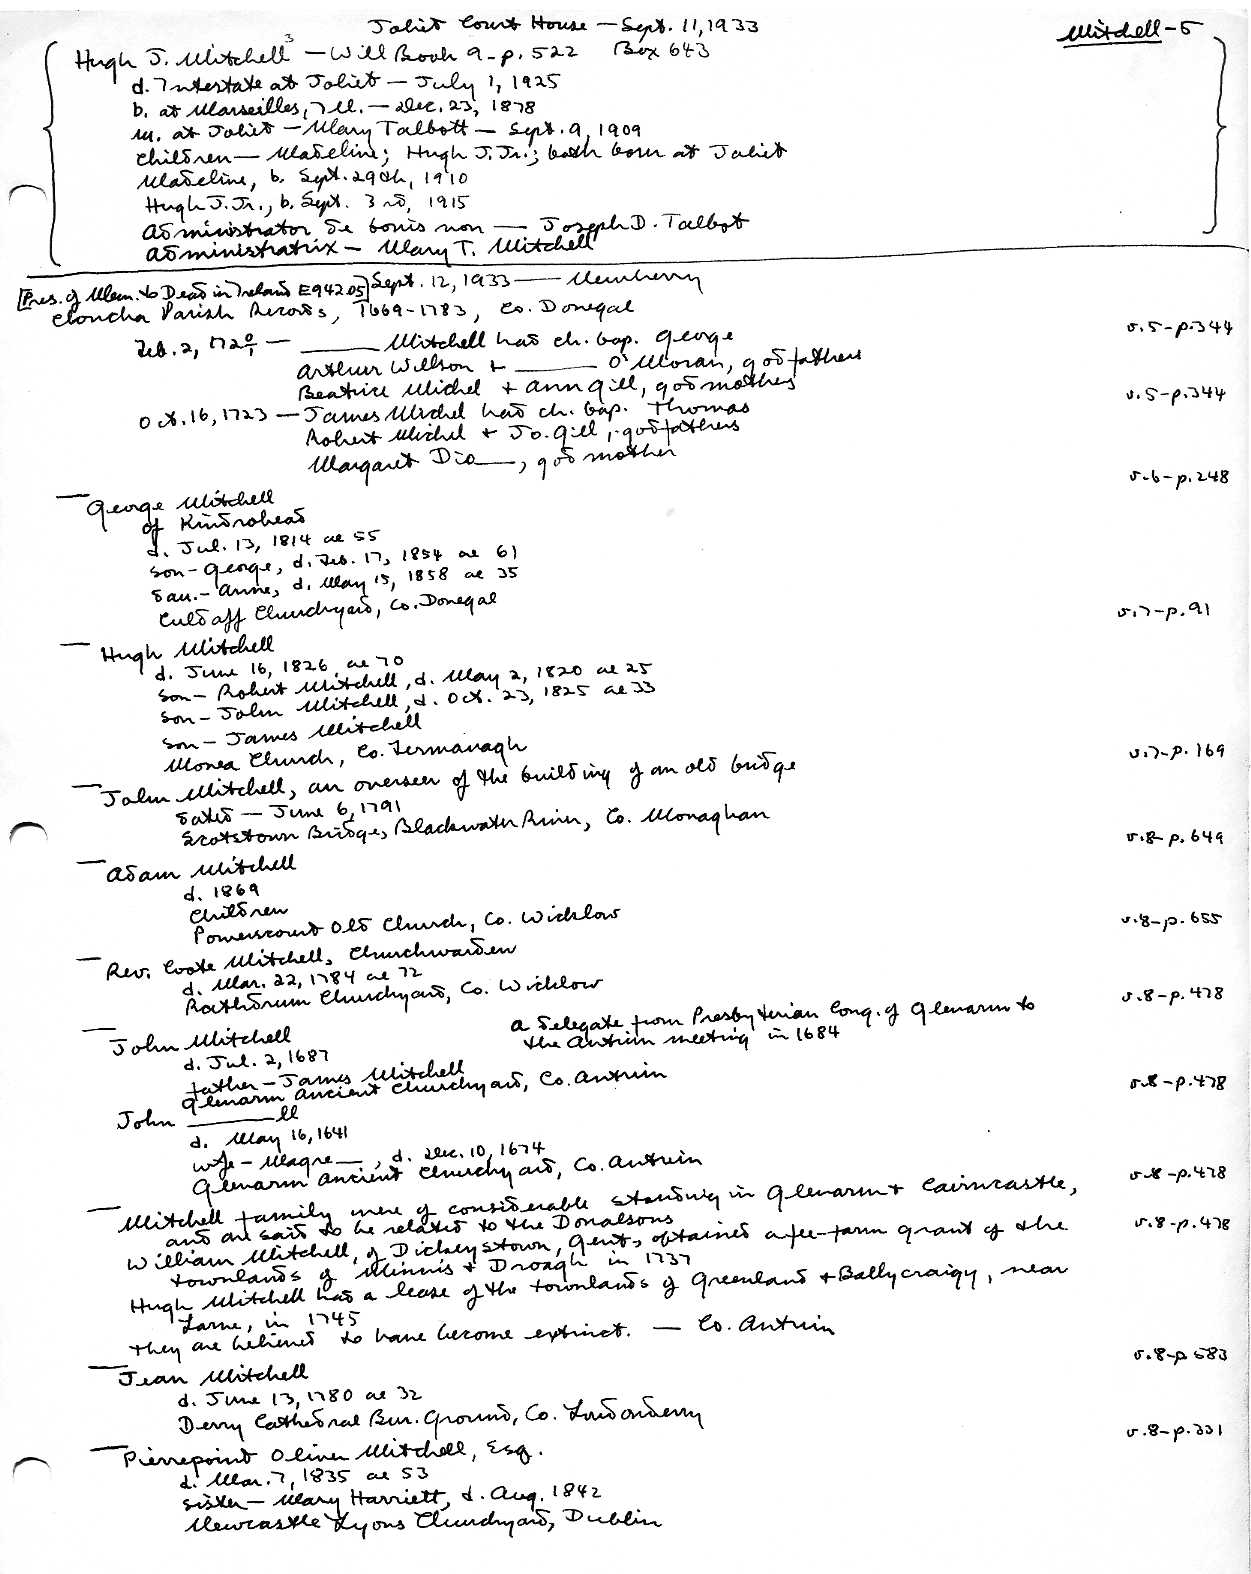 Joliet Court House — Sept. 11, 1933
Mitchell - 5
Hugh J. Mitchell³ — Will Book 9 - p. 522 Box 643
d. Intestate at Joliet — July 1, 1925
b. at Marseilles, Ill. — Dec. 23, 1878
m. at Joliet — Mary Talbott — Sept. 9, 1909
Children — Madeline; Hugh J. Jr.; both born at Joliet
Madeline, b. Sept. 29th, 1910
Hugh J. Jr., b. Sept. 3rd, 1915
Administrator de bonis non — Joseph D. Talbot
Administratrix — Mary T. Mitchell
[Pres. of Mem. to Dead in Ireland E94205] Sept. 12, 1933 — Newberry
Cloncha Parish Records, 1669-1783, Co. Donegal
Feb. 2, 172 0/1 — ____ Mitchell had ch. bap. George
v.5-p.344
Arthur Willson + ____ O'Moran, godfathers
Beatrice Michel + Ann Gill, godmothers
v.5-p.344
Oct. 16, 1723 — James Michel had ch. bap. Thomas
Robert Michel + Jo. Gill, godfathers
Margaret Dia___, godmother
v.6-p.248
— George Mitchell
of Kindrohead
d. Jul. 13, 1814 ae 55
son - George, d. Feb. 17, 1854 ae 61
dau. - Anne, d. May 15, 1858 ae 35
Culdaff Churchyard, Co. Donegal
v.7-p.91
— Hugh Mitchell
d. June 16, 1826 ae 70
son - Robert Mitchell, d. May 2, 1820 ae 25
son - John Mitchell, d. Oct. 23, 1825 ae 33
son - James Mitchell
Monea Church, Co. Fermanagh
v.7-p.169
— John Mitchell, an overseer of the building of an old bridge
dated — June 6, 1791
Scotstown Bridge, Blackwater River, Co. Monaghan
v.8-p.649
— Adam Mitchell
d. 1869
Children
Powerscourt Old Church, Co. Wicklow
v.8-p.655
— Rev. Coote Mitchell, Churchwarden
d. Mar. 22, 1784 ae 72
Rathdrum Churchyard, Co. Wicklow
v.8-p.478
— John Mitchell
a delegate from Presbyterian Cong. of Glenarm to
the Antrim meeting in 1684
d. Jul. 2, 1687
father - James Mitchell
Glenarm Ancient Churchyard, Co. Antrim
v.8-p.478
John ____ll
d. May 16, 1641
wife - Magre__, d. Dec. 10, 1674
Glenarm Ancient Churchyard, Co. Antrim
v.8-p.478
— Mitchell family were of considerable standing in Glenarm + Cairncastle,
and are said to be related to the Donalsons
v.8-p.478
William Mitchell, of Dickeystown, Gent, obtained a fee-farm grant of the
townlands of Minnis + Droagh in 1737
Hugh Mitchell had a lease of the townlands of Greenland + Ballycraigy, near
Larne, in 1745
They are believed to have become extinct. — Co. Antrim
v.8-p.583
— Jean Mitchell
d. June 13, 1780 ae 32
Derry Cathedral Bur. Ground, Co. Londonderry
v.8-p.331
— Pierrepoint Oliver Mitchell, Esq.
d. Mar. 7, 1835 ae 53
sister - Mary Harriett, d. Aug. 1842
Newcastle Lyons Churchyard, Dublin